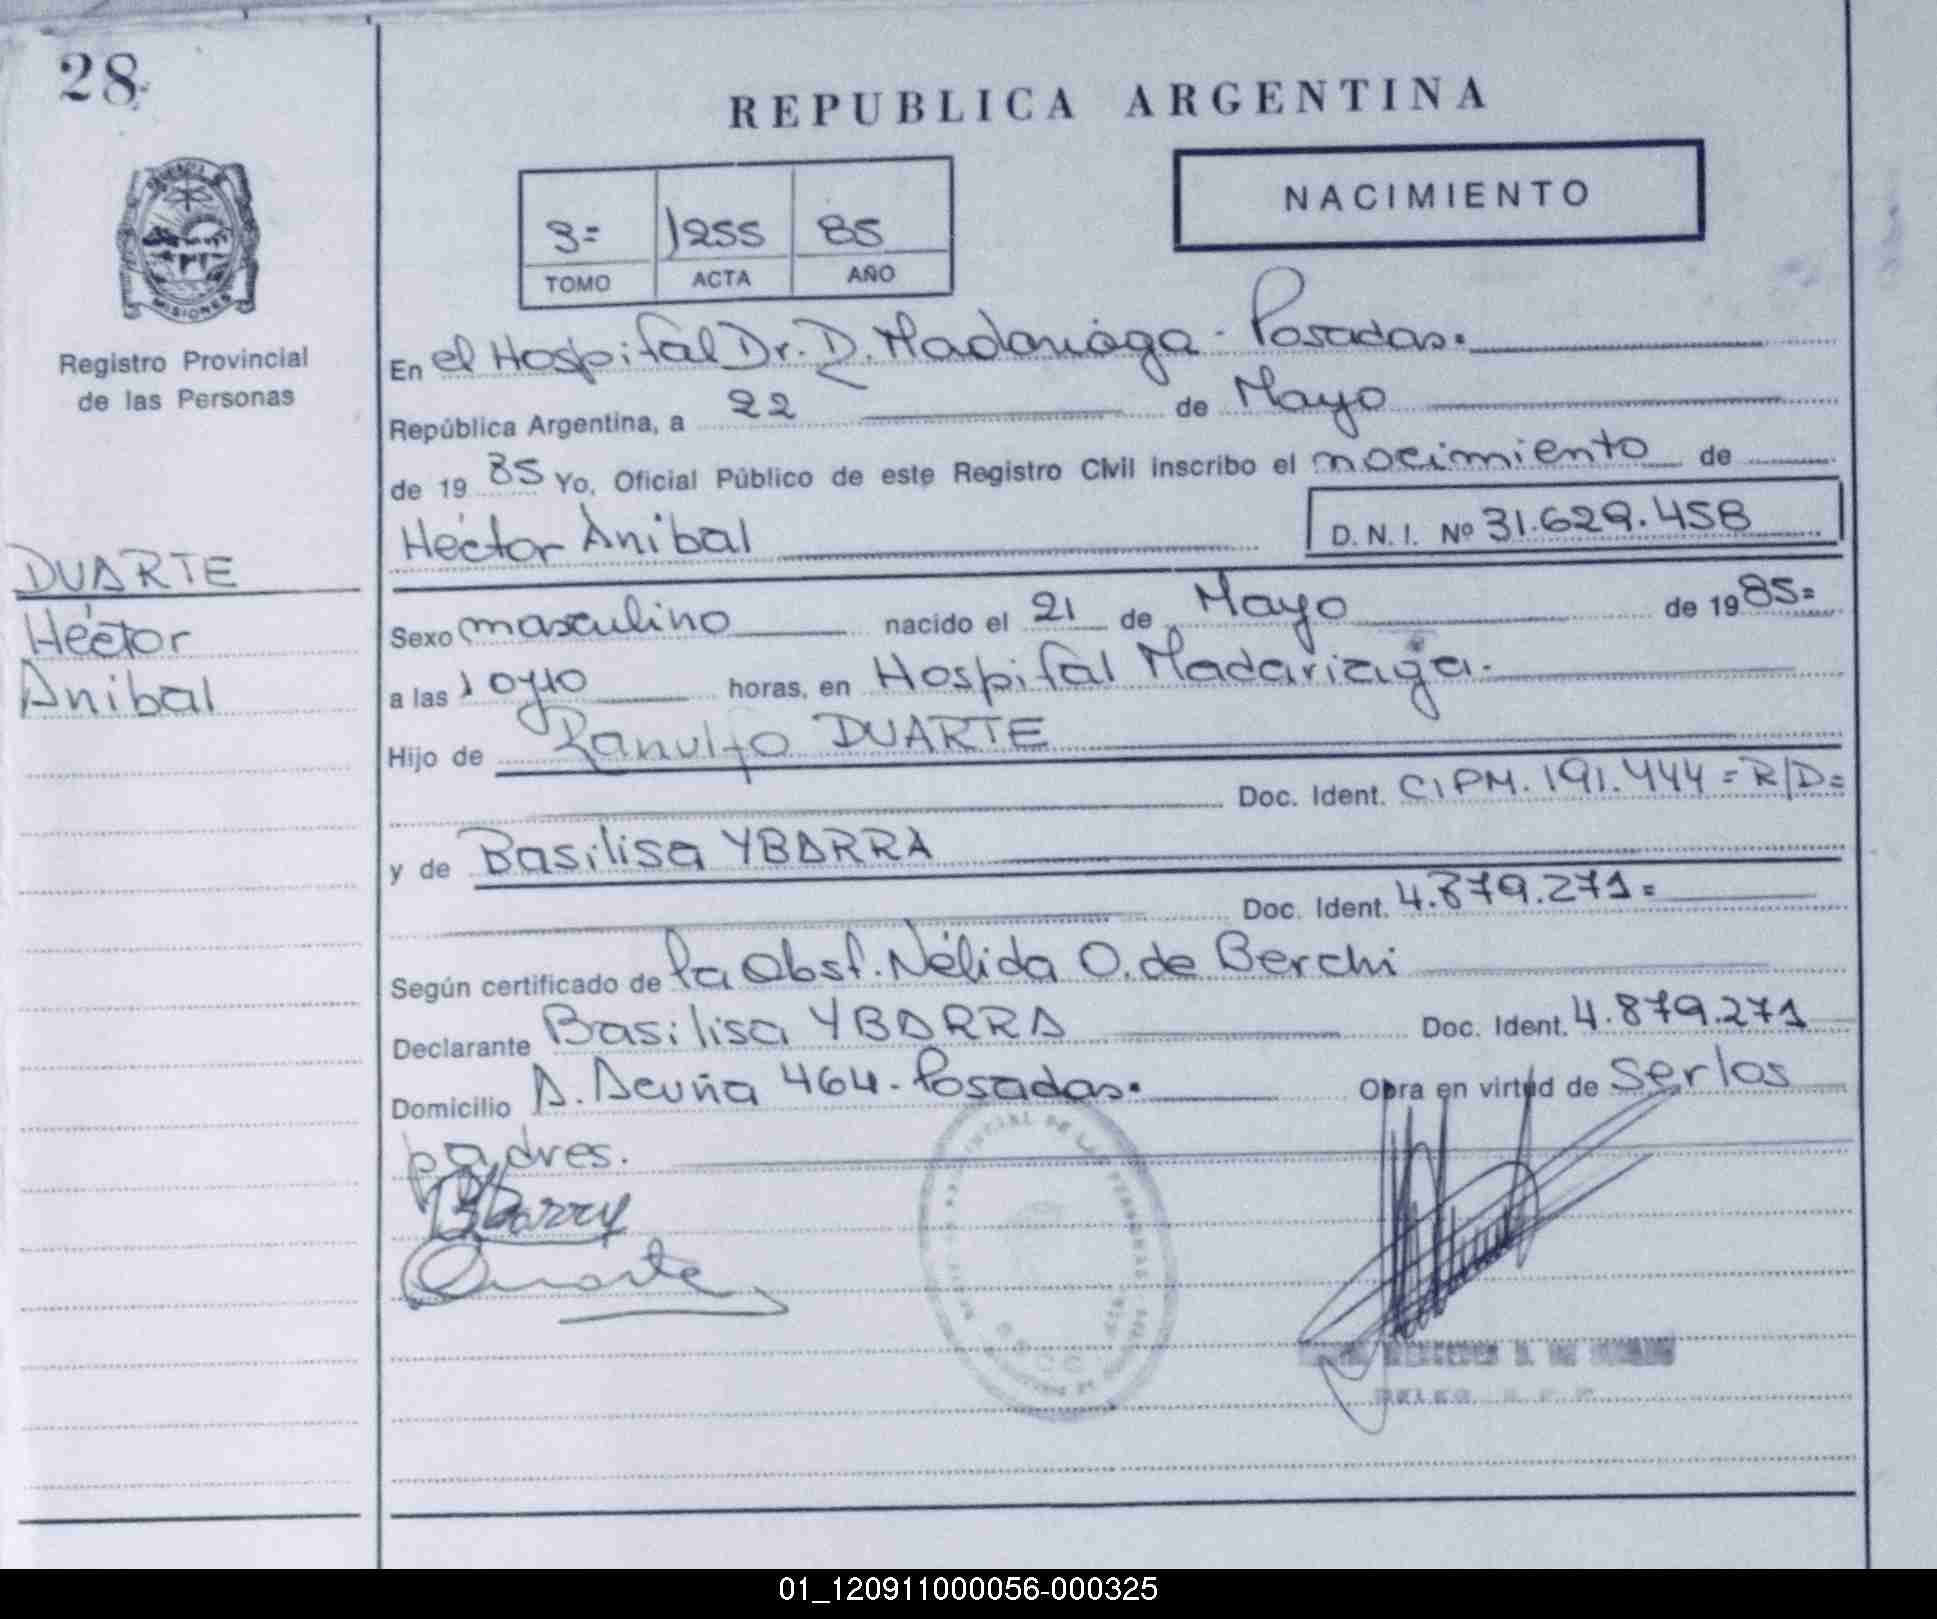 28
REPUBLICA ARGENTINA
NACIMIENTO
3= 1255 85
TOMO ACTA AÑO
MISIONES
Registro Provincial
de las Personas
En el Hospital Dr. D. Madariaga - Posadas.
República Argentina, a 22 de Mayo
de 19 85 Yo, Oficial Público de este Registro Civil inscribo el nacimiento de
Héctor Anibal D.N.I. Nº 31.629.458
DUARTE
Héctor
Anibal
Sexo masculino nacido el 21 de Mayo de 1985=
a las 10y10 horas, en Hospital Madariaga.
Hijo de Ranulfo DUARTE
Doc. Ident. CIPM. 191.444= R/D=
y de Basilisa YBARRA
Doc. Ident. 4.879.271=
Según certificado de la Obst. Nélida O. de Berchi
Declarante Basilisa YBARRA Doc. Ident. 4.879.271
Domicilio A. Acuña 464 - Posadas. Obra en virtud de ser los
padres.
Duarte
01_120911000056-000325